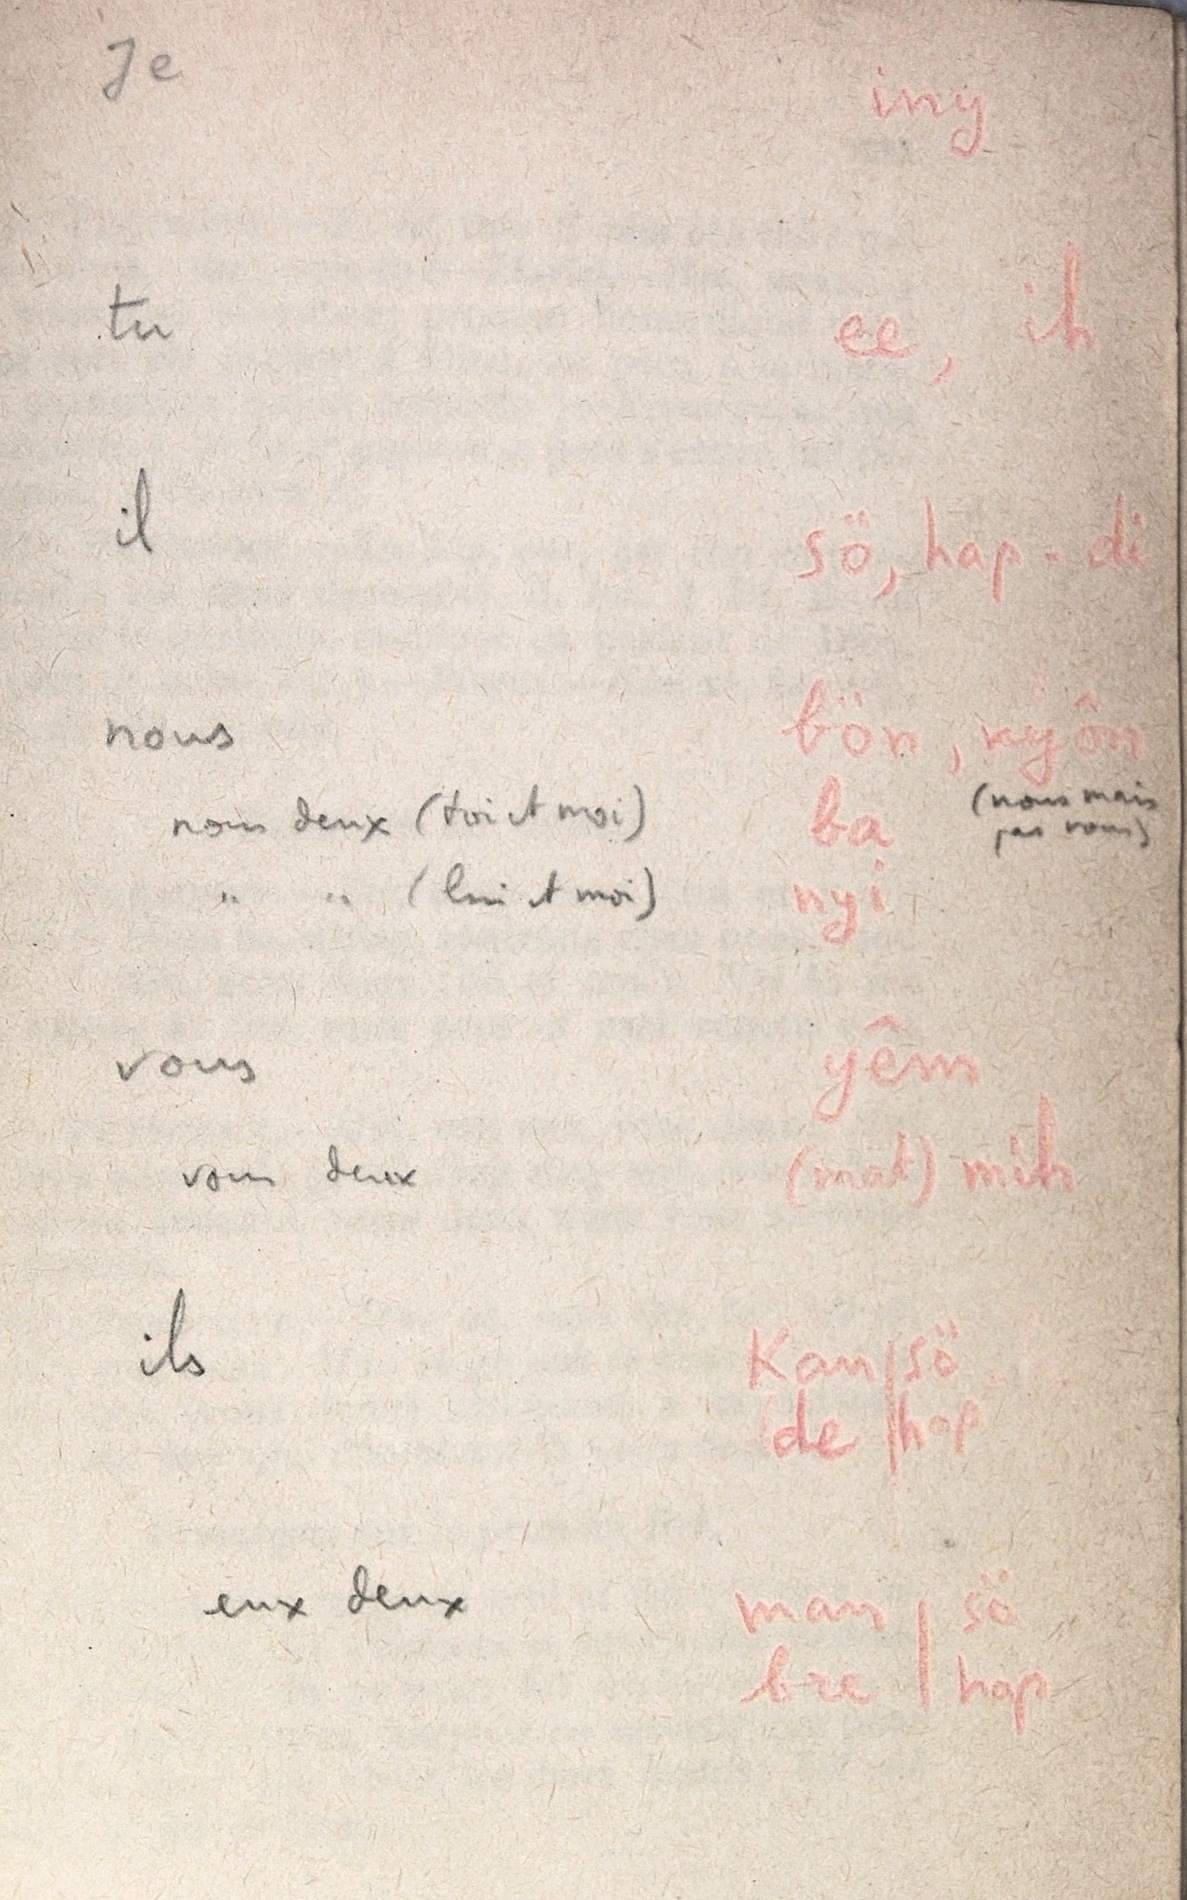 Je iny
tu ee, ih
il sö, hap - di
nous bön, nyôn
nous deux (toi et moi) ba (nous mais
pas vous)
" " (lui et moi) nyi
vous yêm
vous deux (mat) mih
ils Kan | sö
de | hap
eux deux man | sö
bre | hap